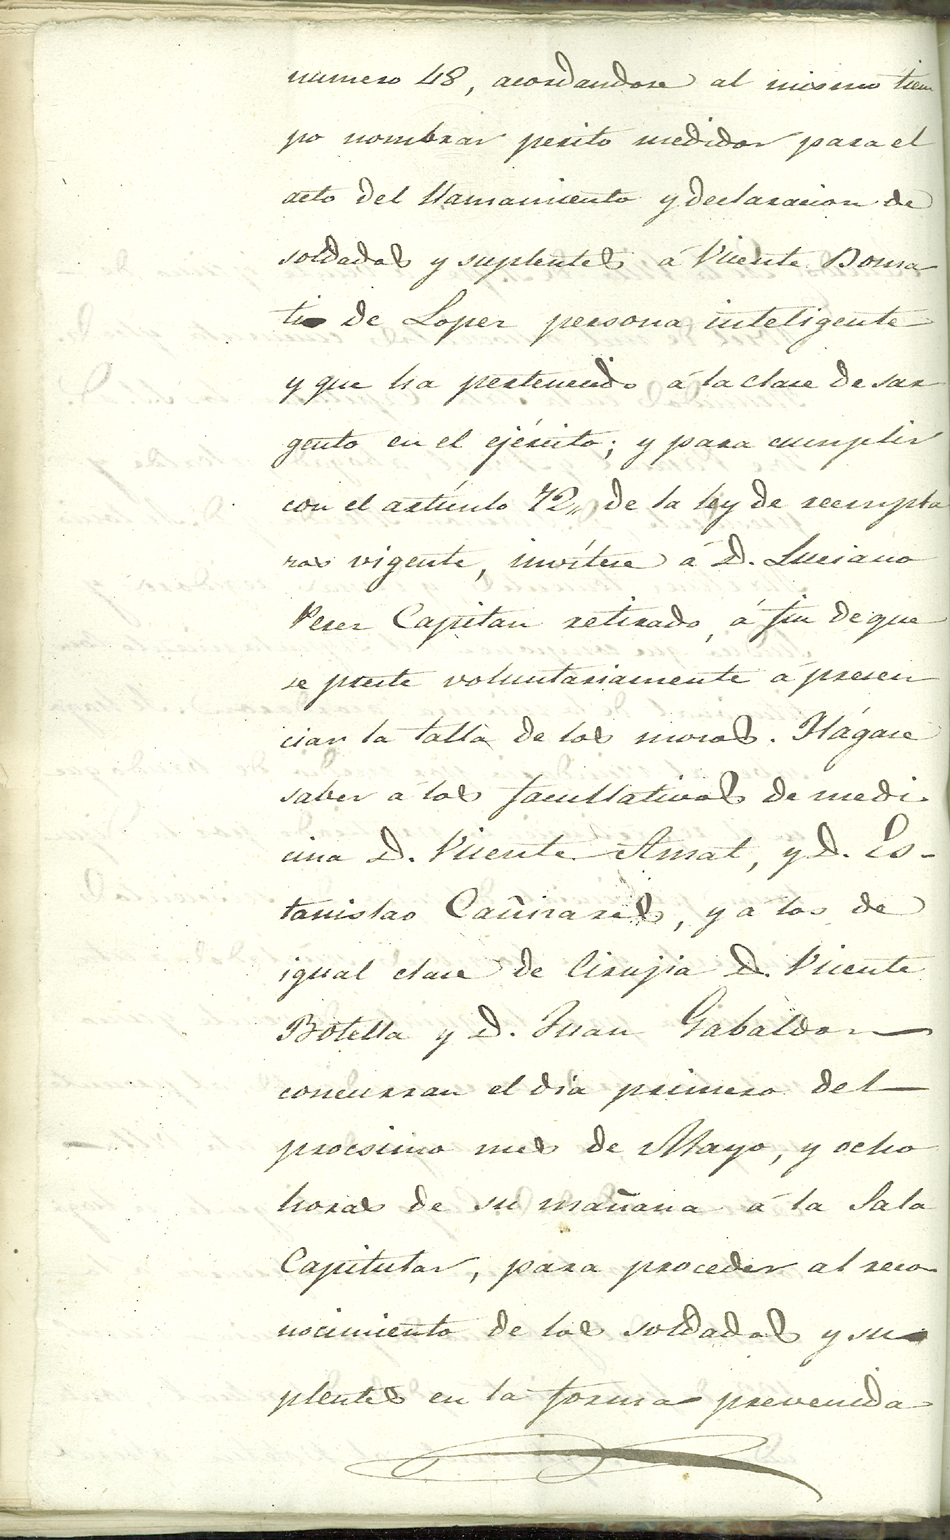 numero 48, acordandose al mismo tiem
po nombrar perito medidor para el
acto del llamamiento y declaracion de
soldados y suplentes á Vicente Boma
ti de Loper persona inteligente
y que ha pertenecido á la clase de sar
gento en el ejército; y para cumplir
con el artículo 72, de la ley de reempla
zos vigente, invítese á D. Luciano
Perez Capitan retirado, á fin de que
se preste voluntariamente á presen
ciar la talla de los mozos. Hágase
saber a los facultativos de medi
cina D. Vicente Amat, y D. Es-
tanislao Cañizares, y a los de
igual clase de Cirujia D. Vicente
Botella y D. Juan Gabaldon
concurran el dia primero del
procsimo mes de Mayo, y ocho
horas de su mañana á la Sala
Capitular, para proceder al reco
nocimiento de los soldados y su
plentes en la forma prevenida